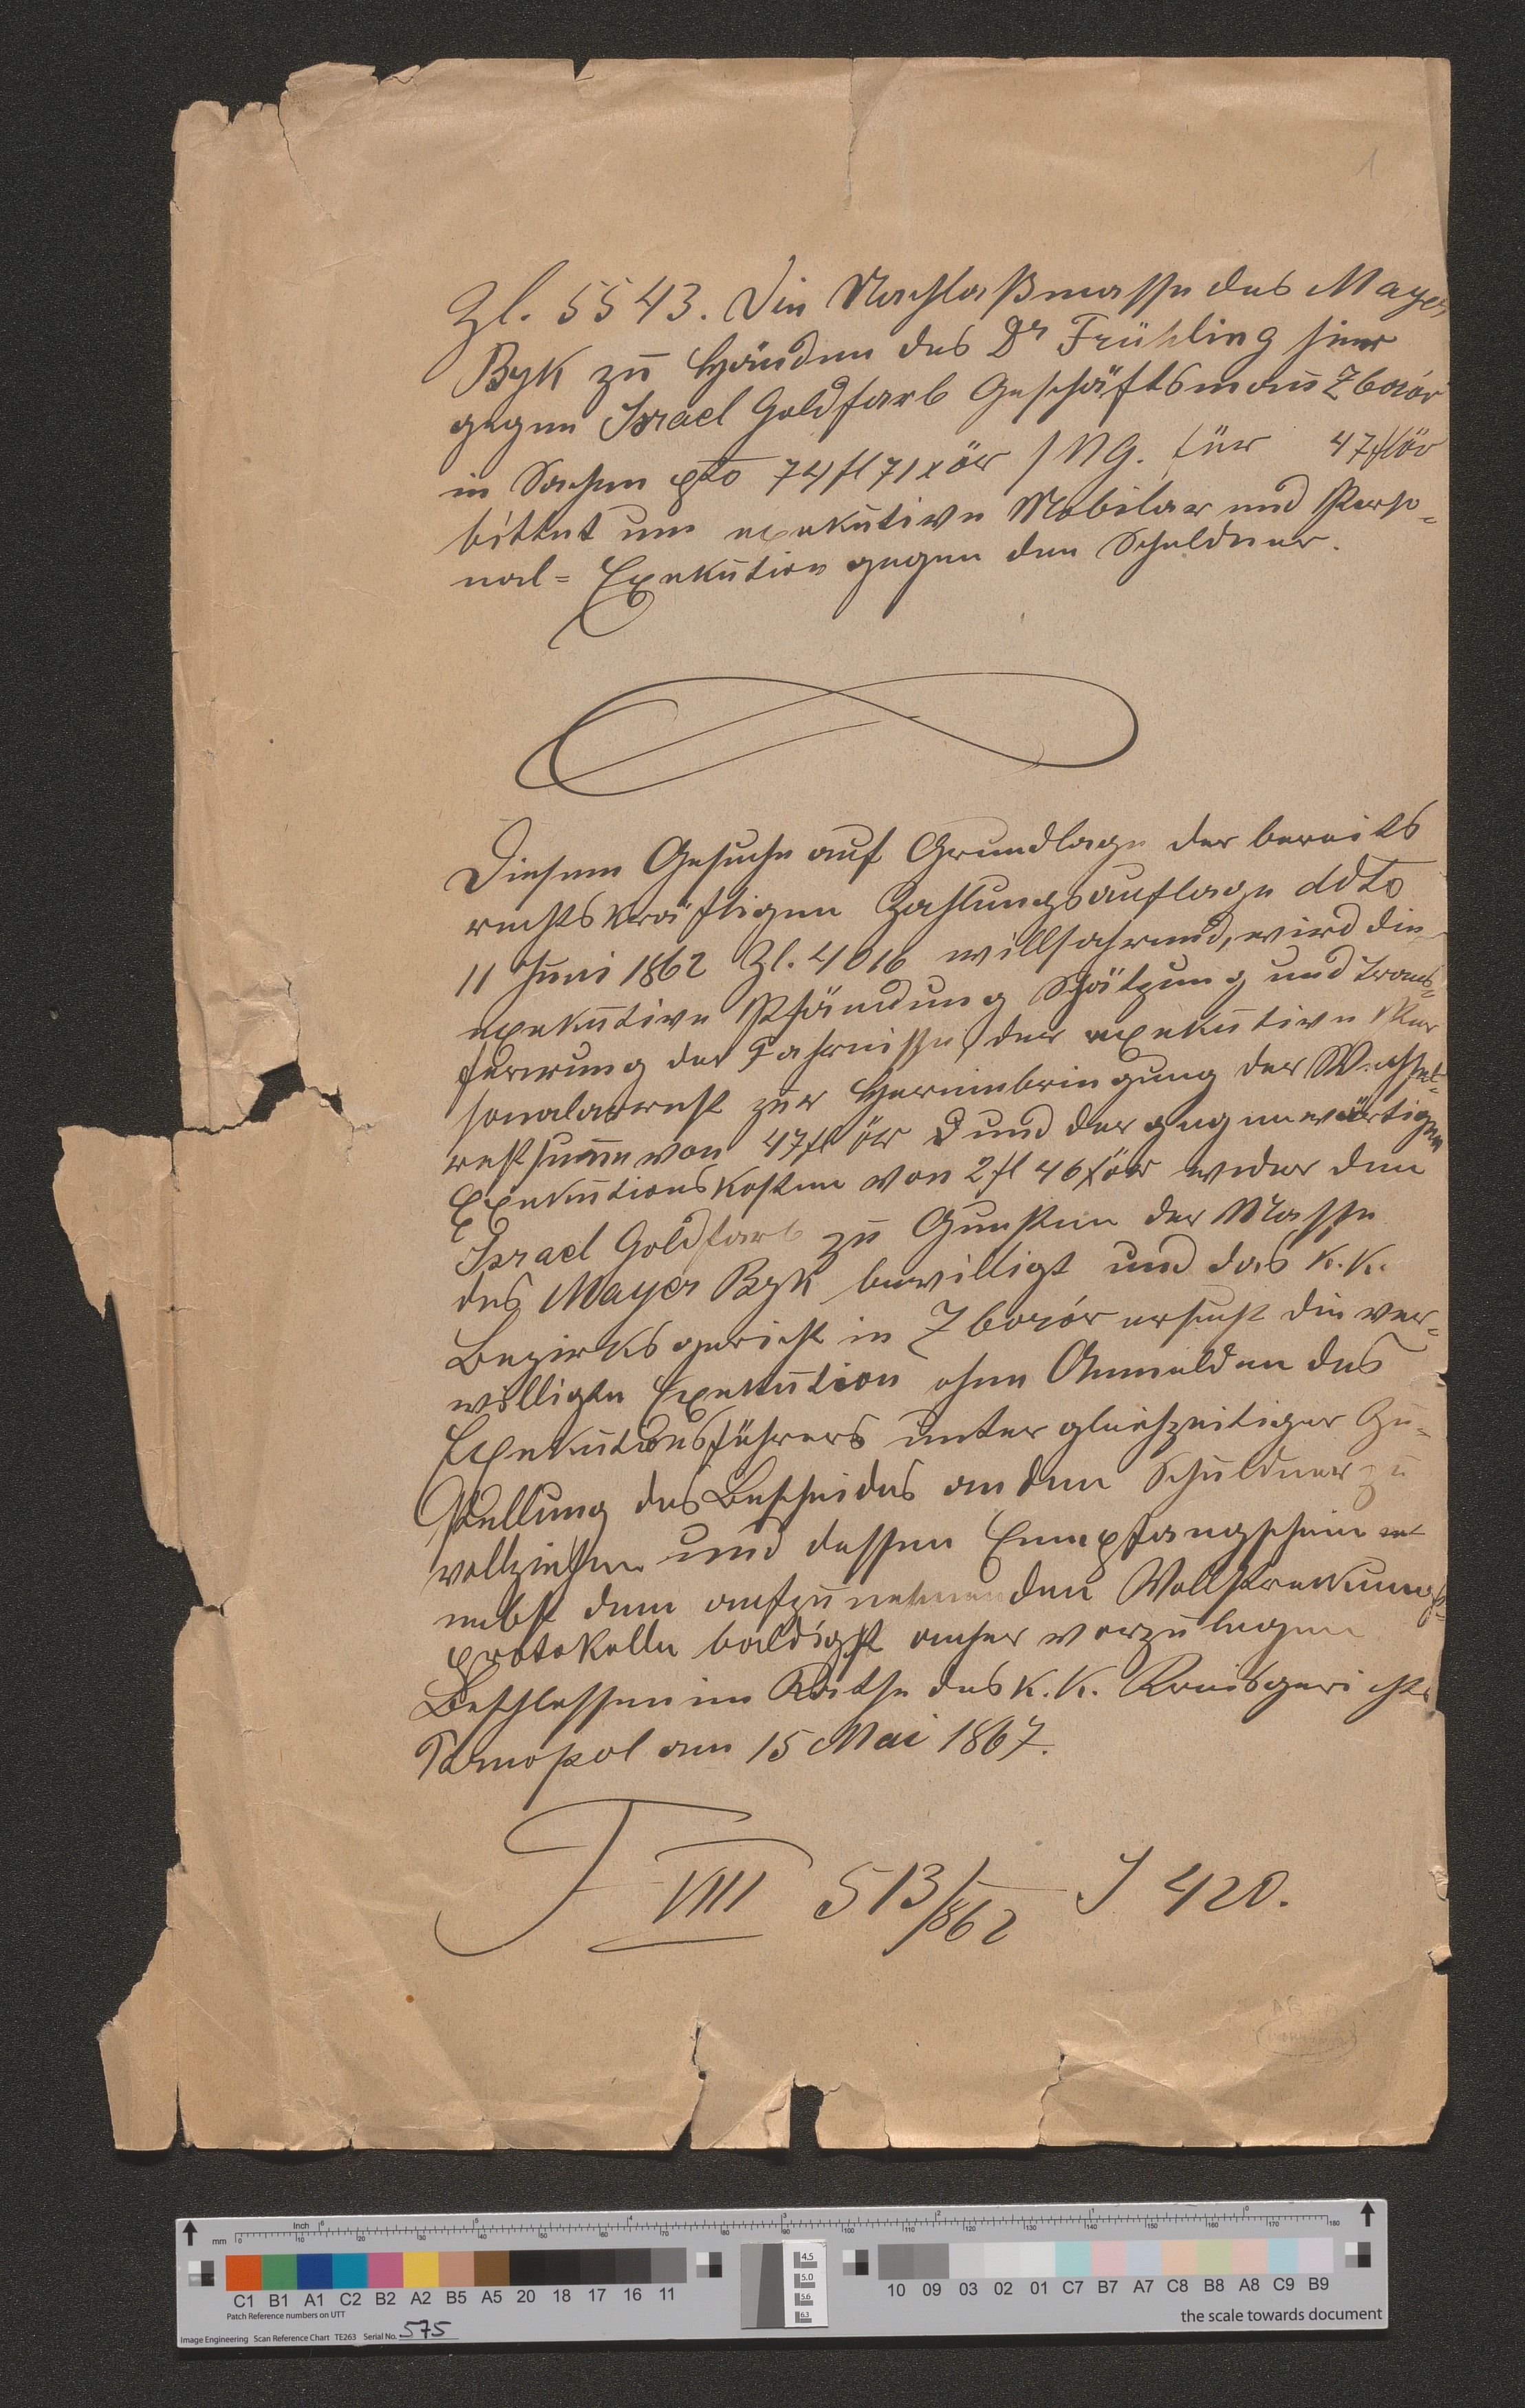 1
Zl. 5543. Die Nachlaßmasse des Mayer
Byk zu Händen des Dr Frühling hier
gegen Israel Goldfarb Geschäftsmann Zborów
in Sachen pto 74 fl 71 x öw /NG. für 47 fl öw
bittet um exekutive Mobilar und Perso=
nal= Exekution gegen den Schuldner.
Diesem Gesuche auf Grundlage der bereits
rechtskräftigen Zahlungsauflage ddto
11 Juni 1862 Zl. 4016 willfahrend, wird die
exekutive Pfändung Schätzung und Trans=
ferirung der Fahrnisse, der exekutive Per
sonalarrest zur Hereinbringung der Wechsel=
restsumme von 47 fl öw und der gegenwärtigen
Exekutionskosten von 2 fl 46 x öw wider den
Israel Goldfarb zu Gunsten der Masse
des Mayer Byk bewilligt und das K. K.
Bezirksgericht in Zborów ersucht die ver=
willigte Exekution ohne Anmelden des
Exekutionsführers unter gleichzeitiger Zu=
stellung des Bescheides an den Schuldner zu
vollziehen und dessen Empfangschein
nebst dem aufzunehmenden Vollstreckungs=
protokolle baldigst anher vorzulegen
Beschlossen im Rathe des K. K. Kreisgerichts
Tarnopol am 15 Mai 1867.
F VIII 513/862 J 420.
mm Inch
C1 B1 A1 C2 B2 A2 B5 A5 20 18 17 16 11
10 09 03 02 01 C7 B7 A7 C8 B8 A8 C9 B9
4.5
5.0
5.6
6.3
Patch Reference numbers on UTT
the scale towards document
Image Engineering Scan Reference Chart TE263 Serial No. 575